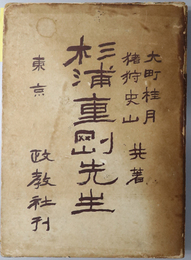 大町桂月
猪狩史山 共著
杉浦重剛先生
東京 政教社刊